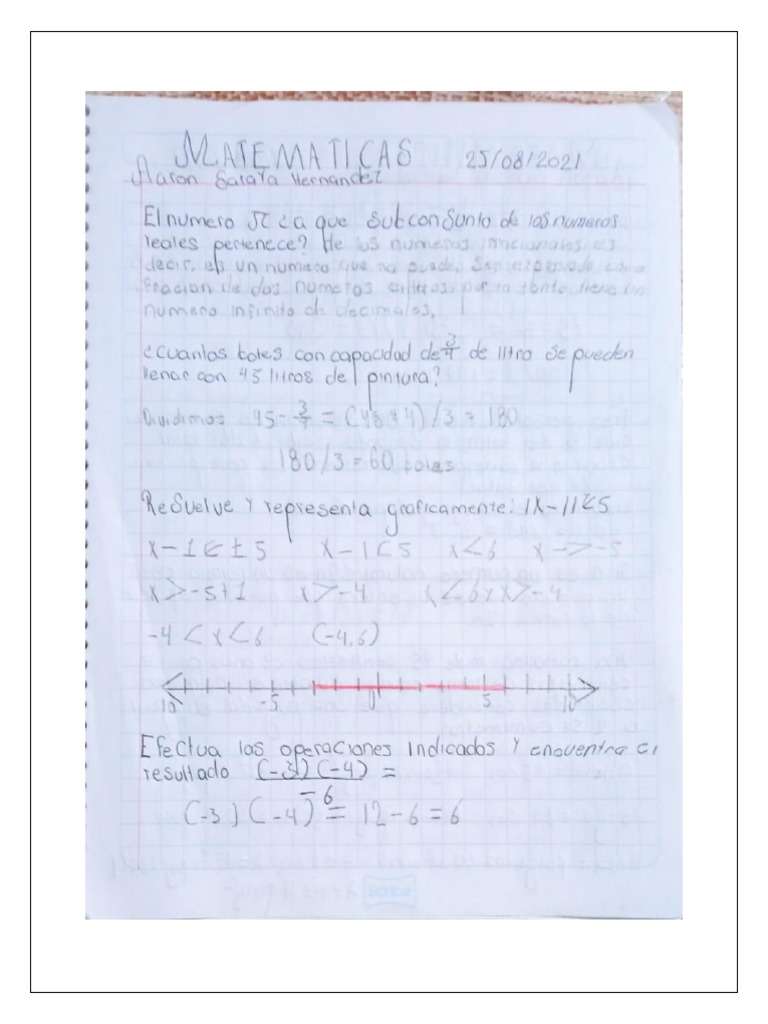 MATEMATICAS 25/08/2021
Aaron Hernandez
El numero π ¿a que subconsunto de los numeros
reales pertenece? de los numeros irracionales, es
decir, es un numero que no puede, ser expresado como
fracion de dos numeros enteros, por lo tanto tiene un
numero infinito de decimales,
¿cuantos botes con capacidad de 3/4 de litro se pueden
llenar con 45 litros de pintura?
Dividimos 45 - 3/4 = (45 * 4) / 3 = 180
180/3 = 60 botes
Resuelve y representa graficamente: |x-1|<5
x-1 < ± 5 x-1<5 x<6 x -> -5
x>-5+1 x>-4 x<6 y x>-4
-4<x<6 (-4,6)
10 -5 0 5 10
Efectua las operaciones indicadas y encuentra el
resultado (-3)(-4) =
-6
(-3)(-4) = 12-6=6